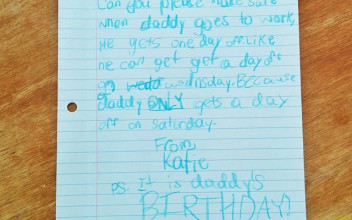 Can you please make sure
when daddy goes to work,
He gets one day off. Like
he can get get a day off
on wednsday. Because
daddy ONLY gets a day
off on saturday.
From
Katie
Ps. It is daddy's
BIRTHDAY!